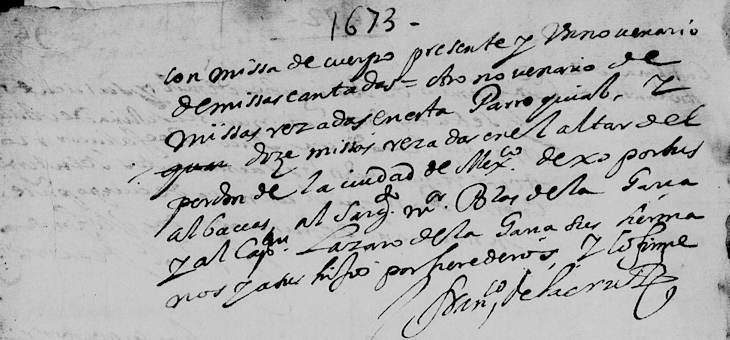 1673 -
con missa de cuerpo presente y Un novenario
de missas cantadas = otro novenario de
missas rezadas en esta Parroquial, y
doze missas rezadas en el altar del
perdon de la ciudad de Mexco. dexo por sus
albaceas al Sargto. mor. Blas de la Garza
y al Capn. Lazaro de la Garza sus herma
nos y a sus hijos por herederos, y lo firme
Franco. de la Cruz